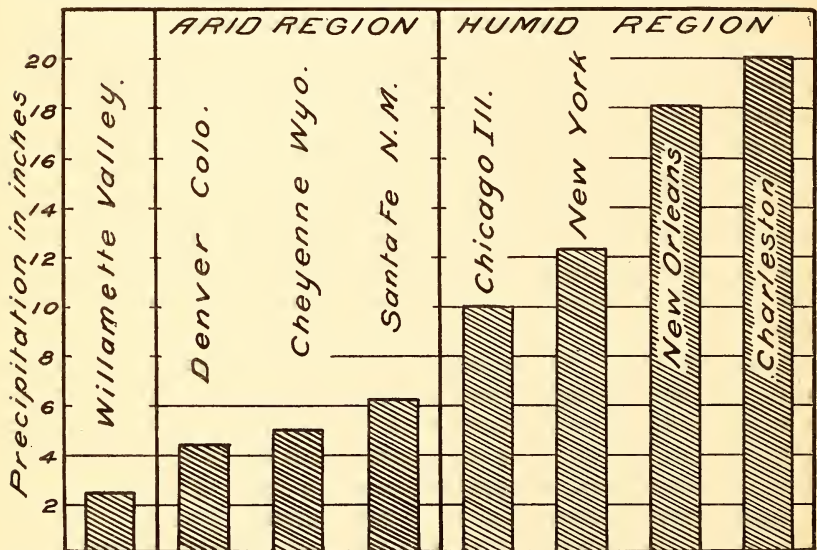 ARID REGION
HUMID REGION
Precipitation in inches
20
18
16
14
12
10
8
6
4
2
Willamette Valley.
Denver Colo.
Cheyenne Wyo.
Santa Fe N.M.
Chicago Ill.
New York
New Orleans
Charleston